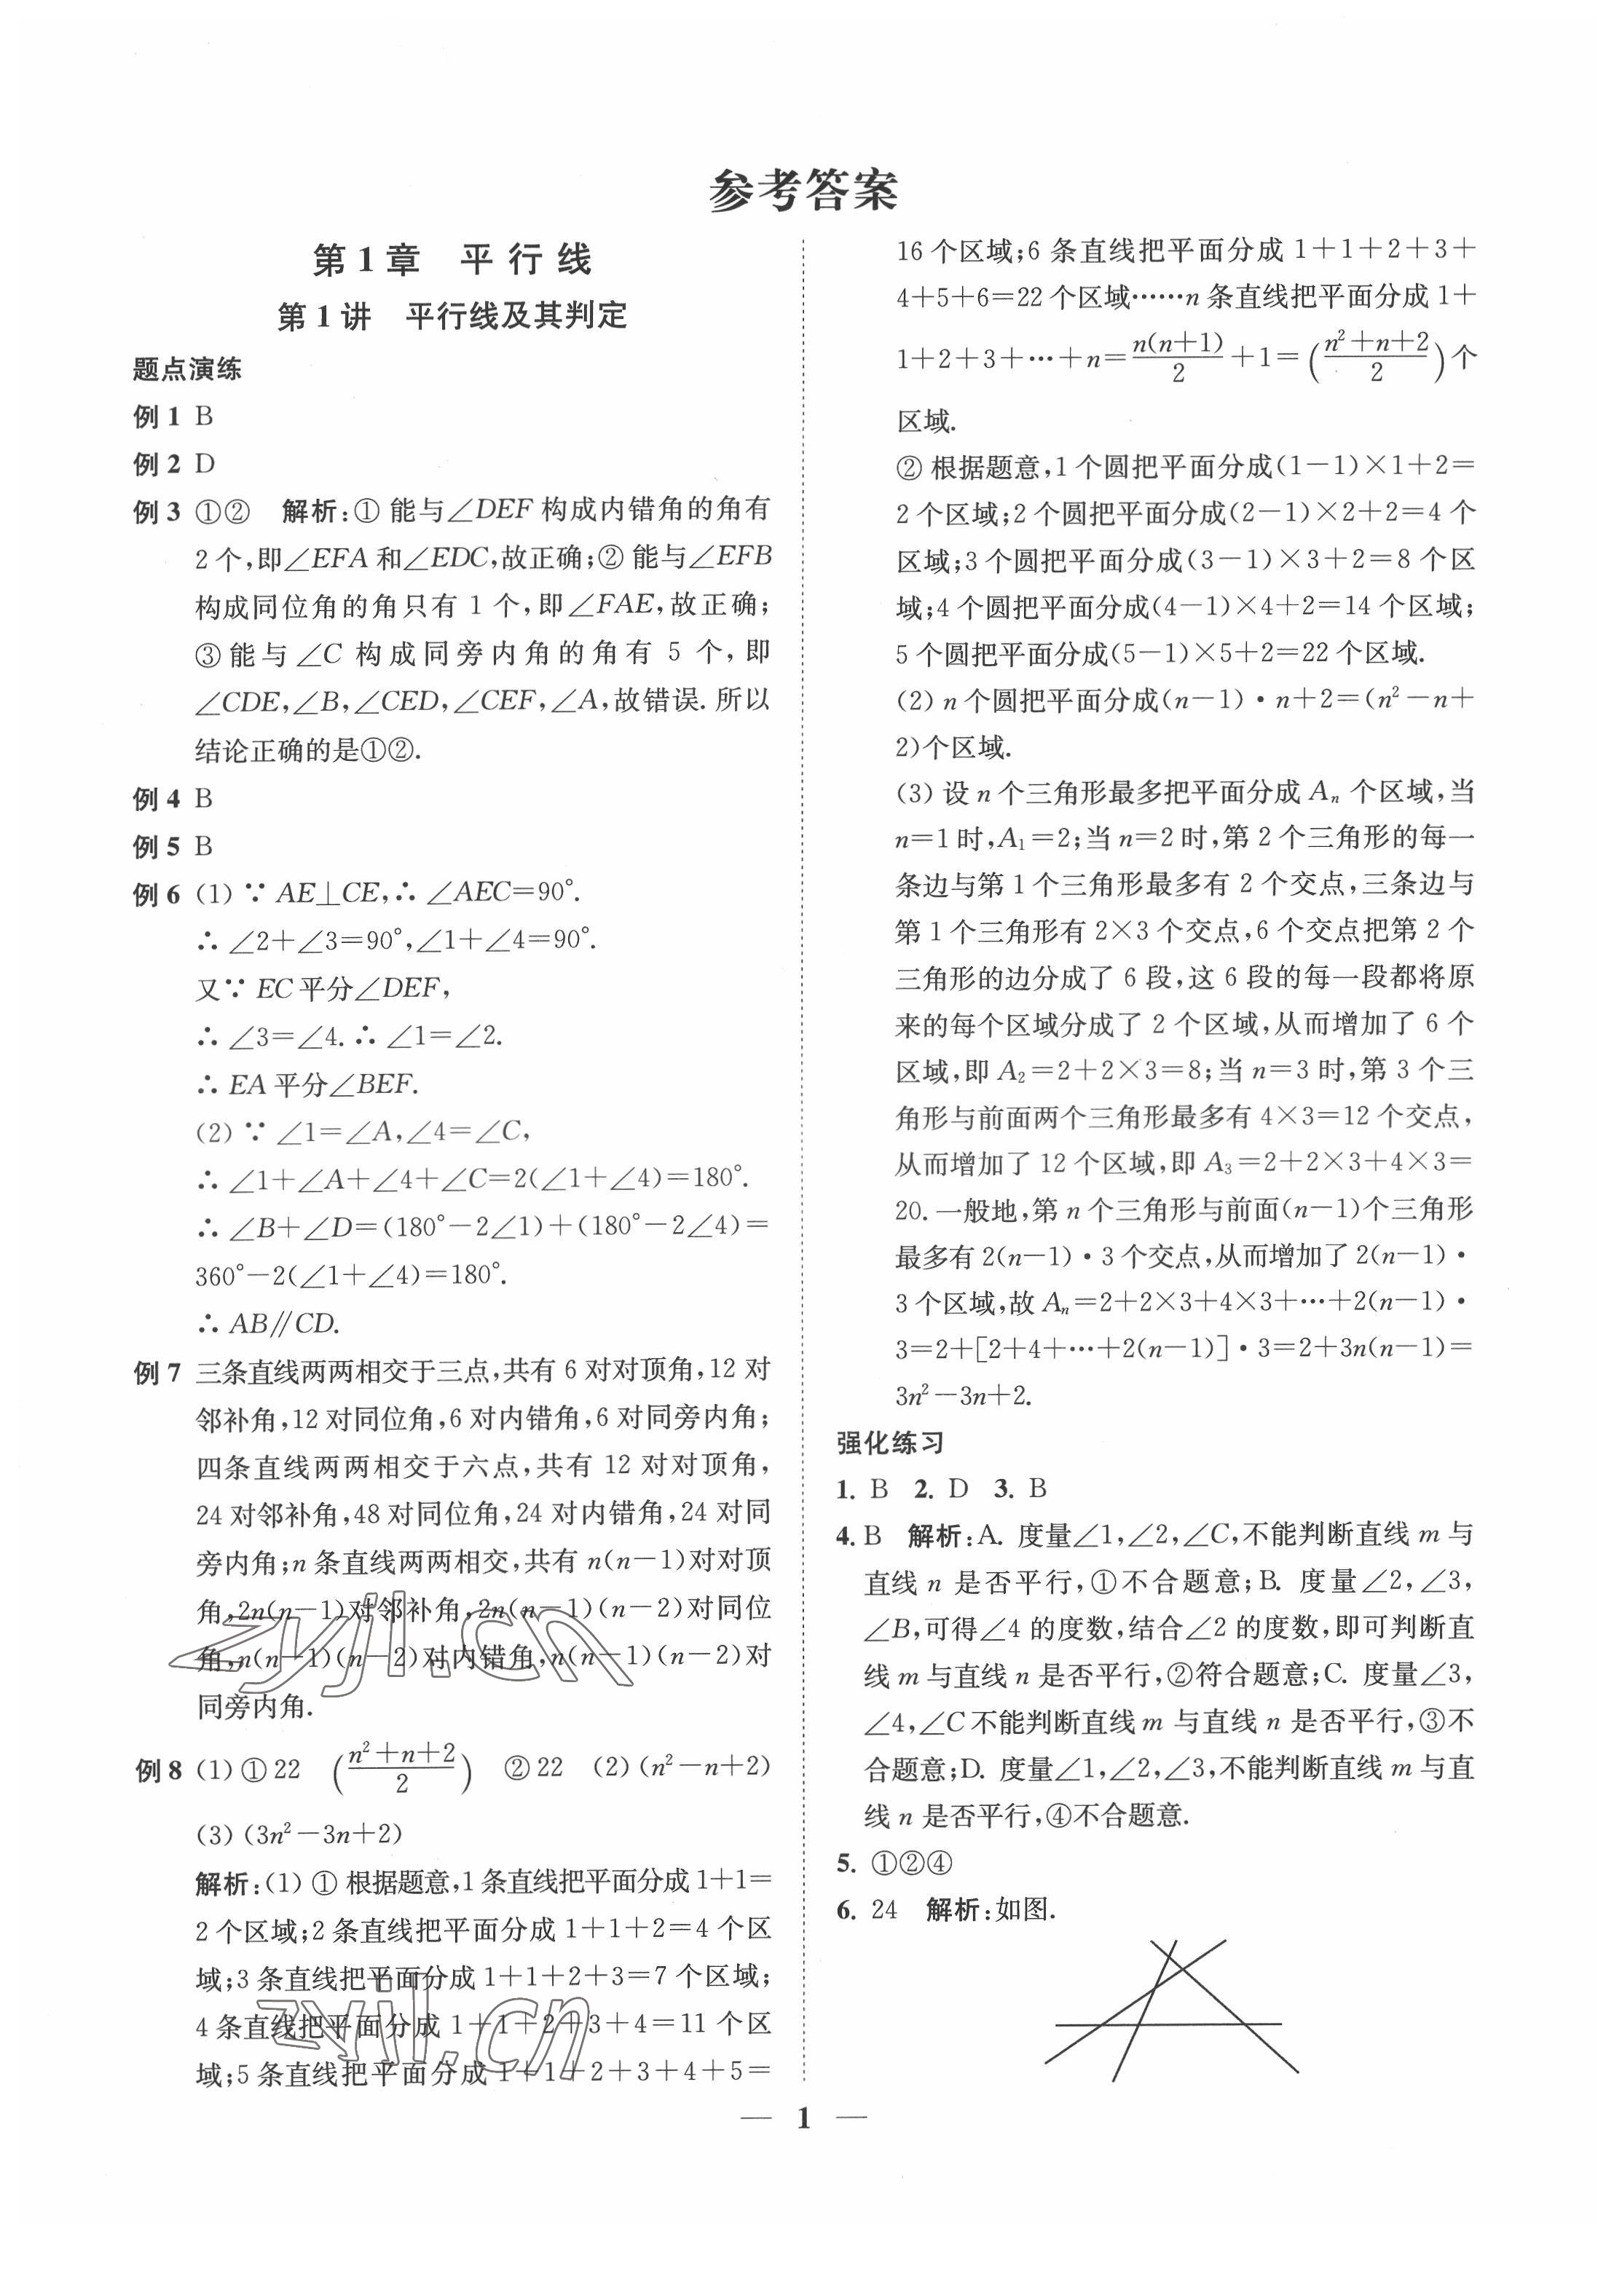 参考答案
第 1 章　平 行 线
第 1 讲　平行线及其判定
题点演练
例 1 B
例 2 D
例 3 ①② 解析:① 能与∠DEF 构成内错角的角有
2 个,即∠EFA 和∠EDC,故正确;② 能与∠EFB
构成同位角的角只有 1 个,即∠FAE,故正确;
③ 能与∠C 构成同旁内角的角有 5 个,即
∠CDE,∠B,∠CED,∠CEF,∠A,故错误. 所以
结论正确的是①②.
例 4 B
例 5 B
例 6 (1) ∵ AE⊥CE,∴ ∠AEC=90°.
∴ ∠2+∠3=90°,∠1+∠4=90°.
又∵ EC 平分∠DEF,
∴ ∠3=∠4. ∴ ∠1=∠2.
∴ EA 平分∠BEF.
(2) ∵ ∠1=∠A,∠4=∠C,
∴ ∠1+∠A+∠4+∠C=2(∠1+∠4)=180°.
∴ ∠B+∠D=(180°-2∠1)+(180°-2∠4)=
360°-2(∠1+∠4)=180°.
∴ AB∥CD.
例 7 三条直线两两相交于三点,共有 6 对对顶角,12 对
邻补角,12 对同位角,6 对内错角,6 对同旁内角;
四条直线两两相交于六点,共有 12 对对顶角,
24 对邻补角,48 对同位角,24 对内错角,24 对同
旁内角;n 条直线两两相交,共有 n(n-1)对对顶
角,2n(n-1)对邻补角,2n(n-1)(n-2)对同位
角,n(n-1)(n-2)对内错角,n(n-1)(n-2)对
同旁内角.
例 8 (1) ① 22 ((n²+n+2)/2) ② 22 (2) (n²-n+2)
(3) (3n²-3n+2)
解析:(1) ① 根据题意,1 条直线把平面分成 1+1=
2 个区域;2 条直线把平面分成 1+1+2=4 个区
域;3 条直线把平面分成 1+1+2+3=7 个区域;
4 条直线把平面分成 1+1+2+3+4=11 个区
域;5 条直线把平面分成 1+1+2+3+4+5=
16 个区域;6 条直线把平面分成 1+1+2+3+
4+5+6=22 个区域……n 条直线把平面分成 1+
1+2+3+…+n=n(n+1)/2+1=((n²+n+2)/2)个
区域.
② 根据题意,1 个圆把平面分成(1-1)×1+2=
2 个区域;2 个圆把平面分成(2-1)×2+2=4 个
区域;3 个圆把平面分成(3-1)×3+2=8 个区
域;4 个圆把平面分成(4-1)×4+2=14 个区域;
5 个圆把平面分成(5-1)×5+2=22 个区域.
(2) n 个圆把平面分成(n-1)·n+2=(n²-n+
2)个区域.
(3) 设 n 个三角形最多把平面分成 Aₙ 个区域,当
n=1 时,A₁=2;当 n=2 时,第 2 个三角形的每一
条边与第 1 个三角形最多有 2 个交点,三条边与
第 1 个三角形有 2×3 个交点,6 个交点把第 2 个
三角形的边分成了 6 段,这 6 段的每一段都将原
来的每个区域分成了 2 个区域,从而增加了 6 个
区域,即 A₂=2+2×3=8;当 n=3 时,第 3 个三
角形与前面两个三角形最多有 4×3=12 个交点,
从而增加了 12 个区域,即 A₃=2+2×3+4×3=
20. 一般地,第 n 个三角形与前面(n-1)个三角形
最多有 2(n-1)·3 个交点,从而增加了 2(n-1)·
3 个区域,故 Aₙ=2+2×3+4×3+…+2(n-1)·
3=2+[2+4+…+2(n-1)]·3=2+3n(n-1)=
3n²-3n+2.
强化练习
1. B 2. D 3. B
4. B 解析:A. 度量∠1,∠2,∠C,不能判断直线 m 与
直线 n 是否平行,①不合题意;B. 度量∠2,∠3,
∠B,可得∠4 的度数,结合∠2 的度数,即可判断直
线 m 与直线 n 是否平行,②符合题意;C. 度量∠3,
∠4,∠C 不能判断直线 m 与直线 n 是否平行,③不
合题意;D. 度量∠1,∠2,∠3,不能判断直线 m 与直
线 n 是否平行,④不合题意.
5. ①②④
6. 24 解析:如图.
— 1 —
zyjl.cn
zyjl.cn